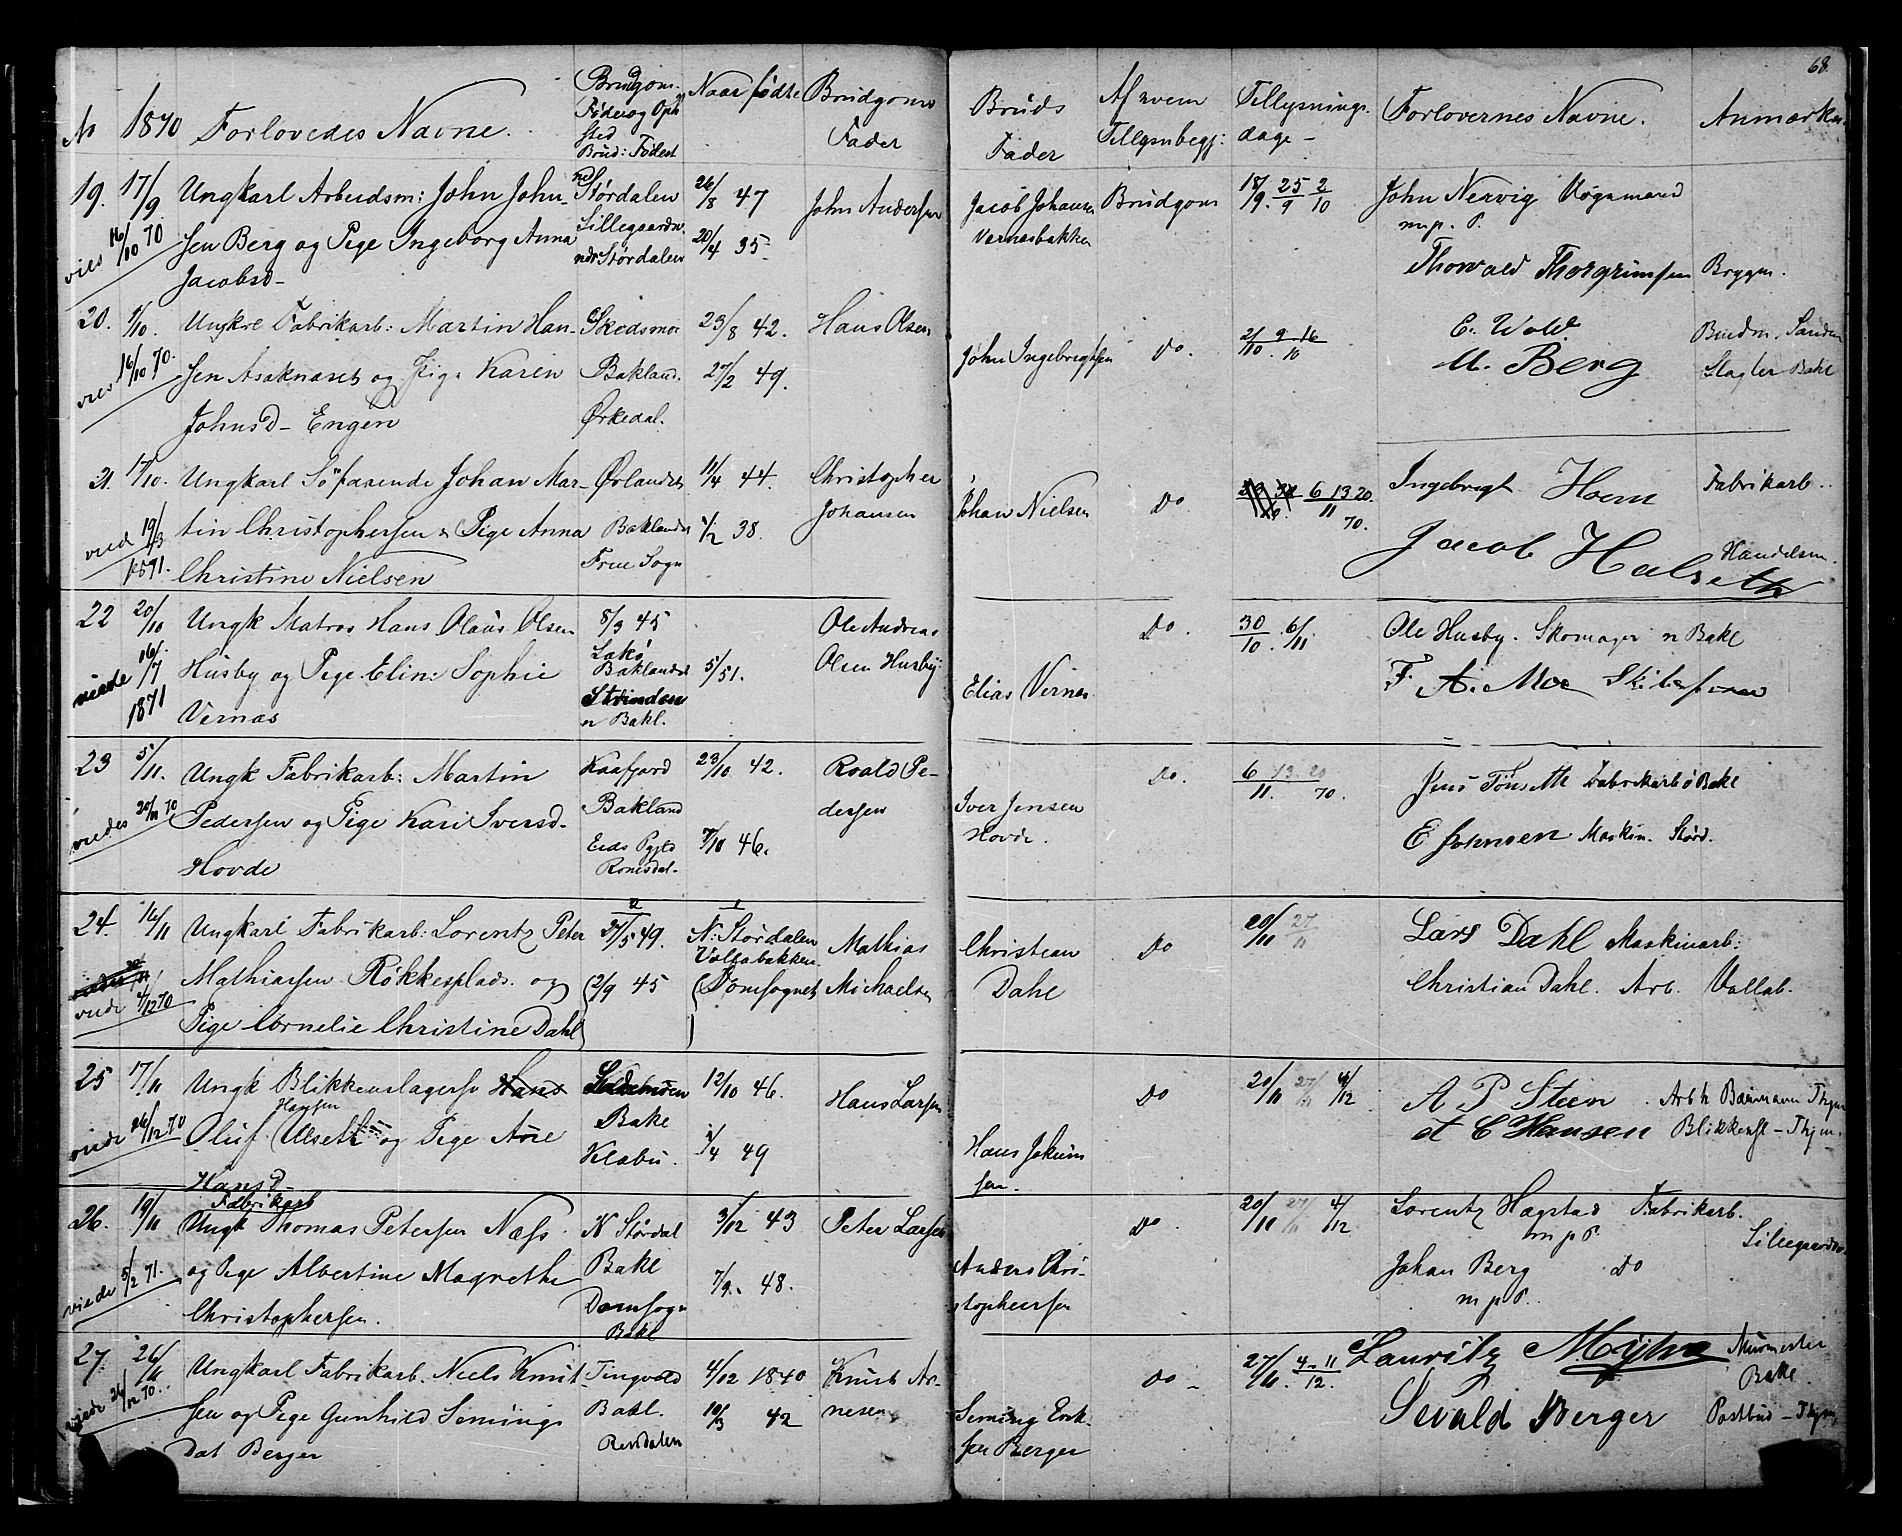 68.
№ 1870 Forlovedes Navne. Brudgom. Føde og Oph sted Brud: Fødest Naar fødte Brudgoms Fader Bruds Fader Af hvem Tillysnbegj: Tillysnings dage – Forlovernes Navne. Anmærkn.
19. 17/9 Ungkarl Arbeidsm: John John- Størdalen 26/8 47 John Andersen Jacob Johansen Brudgom 18/9. 25/9 2/10 John Nervig Røgsmand
viet 16/10 70 sen Berg og Pige Ingeborg Anna Lillegaardn. 20/4 35 Værnesbakken m. p. P.
Jacobsd– ndr Størdalen Thorvald Thorgrimsen Bryggm.
20. 1/10. Ungkrl Fabrikarb: Martin Han- Skedsmo 23/8 42. Hans Olsen E. Wold Budm. Sanden
viet 16/10 70. sen Asaknæset og Pige Karen Bakland. 27/2 49. John Ingebrigtsen Do. 2/10 9 16/10 M. Berg Slagter Bakl
Johnsd– Engen Ørkedal.
21. 17/10. Ungkarl Söfarende Johan Mar- Ørlandet 11/4 44 Christopher Johan Nielsen Do 6 13 20/11 70. Ingebrigt Hoem Fabrikarb.
vied 19/3 tin Christophersen & Pige Anna Baklandet 1/2 38. Johansen Jacob Halseth Handelsm.
1871. Christine Nielsen Frue Sogn
22 20/10 Ungk Matros Hans Olaus Olsen 8/3 45 Ole Andreas Do. 30/10. 6/11 Ole Husby. Skomager n Bakl
viede 16/7 Husby og Pige Elin: Sophie Baklandet 5/51. Olsen Husby. Elias Vernes F. A. Moe
1871 Vernæs Strinden n Bakl.
23 5/11. Ungk Fabrikarb: Martin Kaafjord 23/10 42. Roald Pe- Do. 6 13 20/11. 70. Jens Tönseth Fabrikarb ö Bakl
viedes 20/11 70 Pedersen og Pige Kari Iversd– Bakland dersen Iver Jensen E Johnsen Maskin. Størd.
Hovde 7/10 46. Hovde. Romsdal.
24. 16/11 Ungkarl Fabrikarb: Lorentz Peter 27/5 49. N: Størdalen Mathias Christian Do 20/11 27/11 Lars Dahl Maskinarb:
viede 4/12 70 Mathiassen Røkkesplads. og 2/9 45 Vollabakken Domsognet Michaelsen Dahl Christian Dahl. Arb. Vollab.
Pige Cornelie Christine Dahl
25 17/11 Ungk Blikkenslagersv Hans 12/10 46. Hans Larsen Do 20/11 27/11 4/12 A P Steen
viede 26/12 70 Oluf Hansen Ulseth og Pige Ane Bakl 1/4 49 Hans Jokum A C Hansen Blikkensl – Thjm.
Hansd– Klæbu. sen.
26. 19/11 Fabrikarb Ungk Thomas Petersen Næss. N Størdal 3/12 43 Peter Larsen Do. 20/11 27/11 4/12 Lorentz Hagstad Fabrikarb.
m p P. Lillegaarden
viede 5/2 71. og Pige Albertine Magrethe Bakl 7/9. 48. Anders Chri- Johan Berg Do
Christophersen. Domsogn Bakl stophersen m p P.
27. 26/11 Ungkarl Fabrikarb. Niels Knut- Tingvold 4/12 1840 Knut Ar- Do – 27/11. 4 – 11/12. Lauritz Myhre Murmester Bakl.
viede 26/12 70. sen og Pige Gunhild Semings Bakl. 10/3 42 nesen Seming Erik- Sevald Berger Postbud – Thjm
dat Berger Rendalen sen Berger